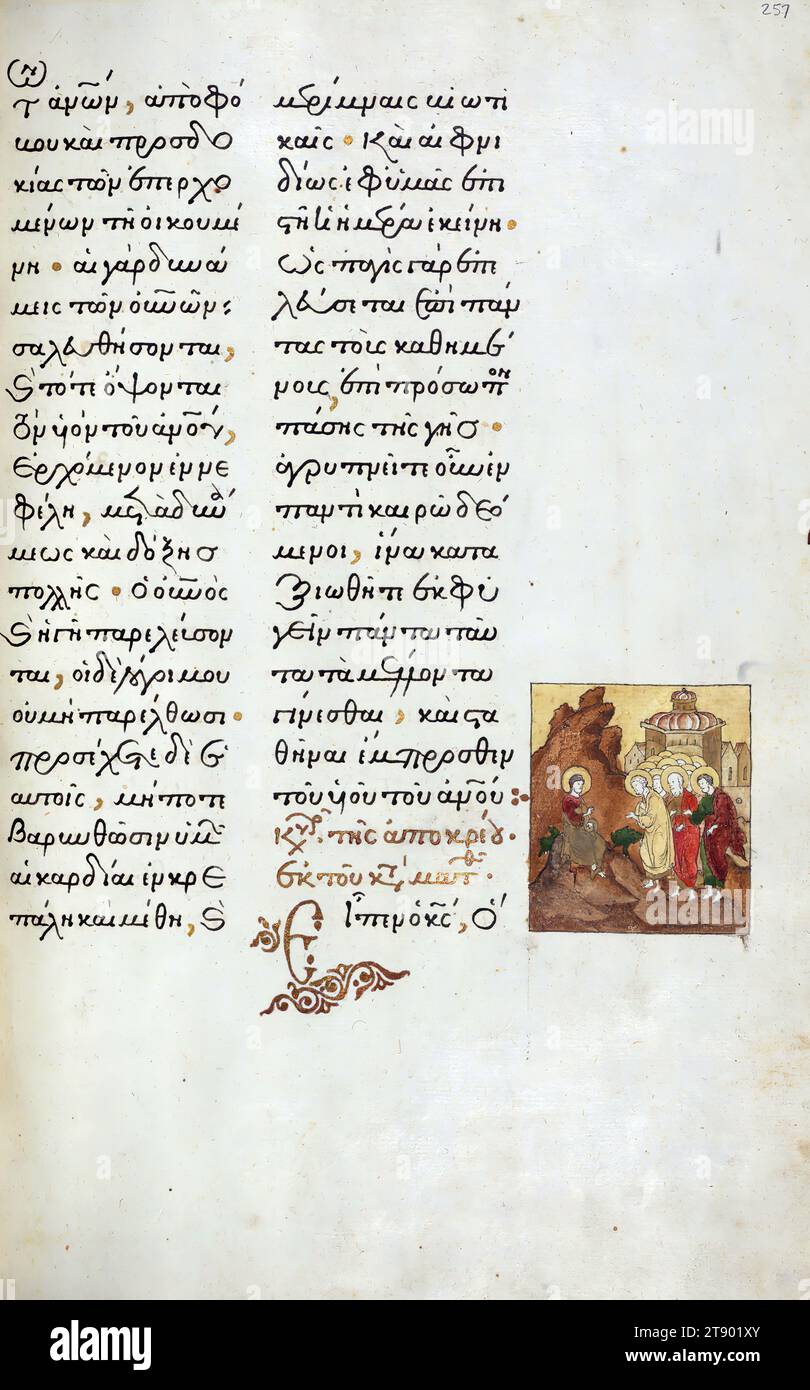 257
τ ἀνῶν, ἀπὸ φό
βου καὶ προσδο
κίας τῶν ἐπερχο
μένων τῇ οἰκουμέ
νῃ · αἱ γὰρ δυνά
μεις τῶν οὐνῶν
σαλευθήσονται,
καὶ τότε ὄψονται
τὸν υἱὸν τοῦ ἀνου,
ἐρχόμενον ἐν νε
φέλῃ, μετὰ δυνά
μεως καὶ δόξης
πολλῆς · ὁ οὐνὸς
καὶ ἡ γῆ παρελεύσον
ται, οἱ δὲ λόγοι μου
οὐ μὴ παρέλθωσι ·
προσέχετε δὲ ἑ
αυτοῖς, μήποτε
βαρυνθῶσιν ὑμῶν
αἱ καρδίαι ἐν κρε
πάλῃ καὶ μέθῃ, καὶ
μερίμναις βιωτι
καῖς · καὶ αἰφνι
δίως ἐφ ὑμᾶς ἐπι
στῇ ἡ ἡμέρα ἐκείνη ·
ὡς παγὶς γὰρ ἐπε
λεύσεται ἐπὶ πάν
τας τοὺς καθημέ
νους, ἐπὶ πρόσωπον
πάσης τῆς γῆς ·
ἀγρυπνεῖτε οὖν ἐν
παντὶ καιρῷ δεό
μενοι, ἵνα κατα
ξιωθῆτε ἐκφυ
γεῖν πάντα ταῦ
τα τὰ μέλλοντα
γίνεσθαι, καὶ στα
θῆναι ἔμπροσθεν
τοῦ υἱοῦ τοῦ ἀνου :
Κυρ. τῆς ἀποκρέου ·
ἐκ τοῦ κτ ματθ ·
Εἶπεν ὁ κς, Ὁ
alamy
Image ID: 2T901XY
www.alamy.com